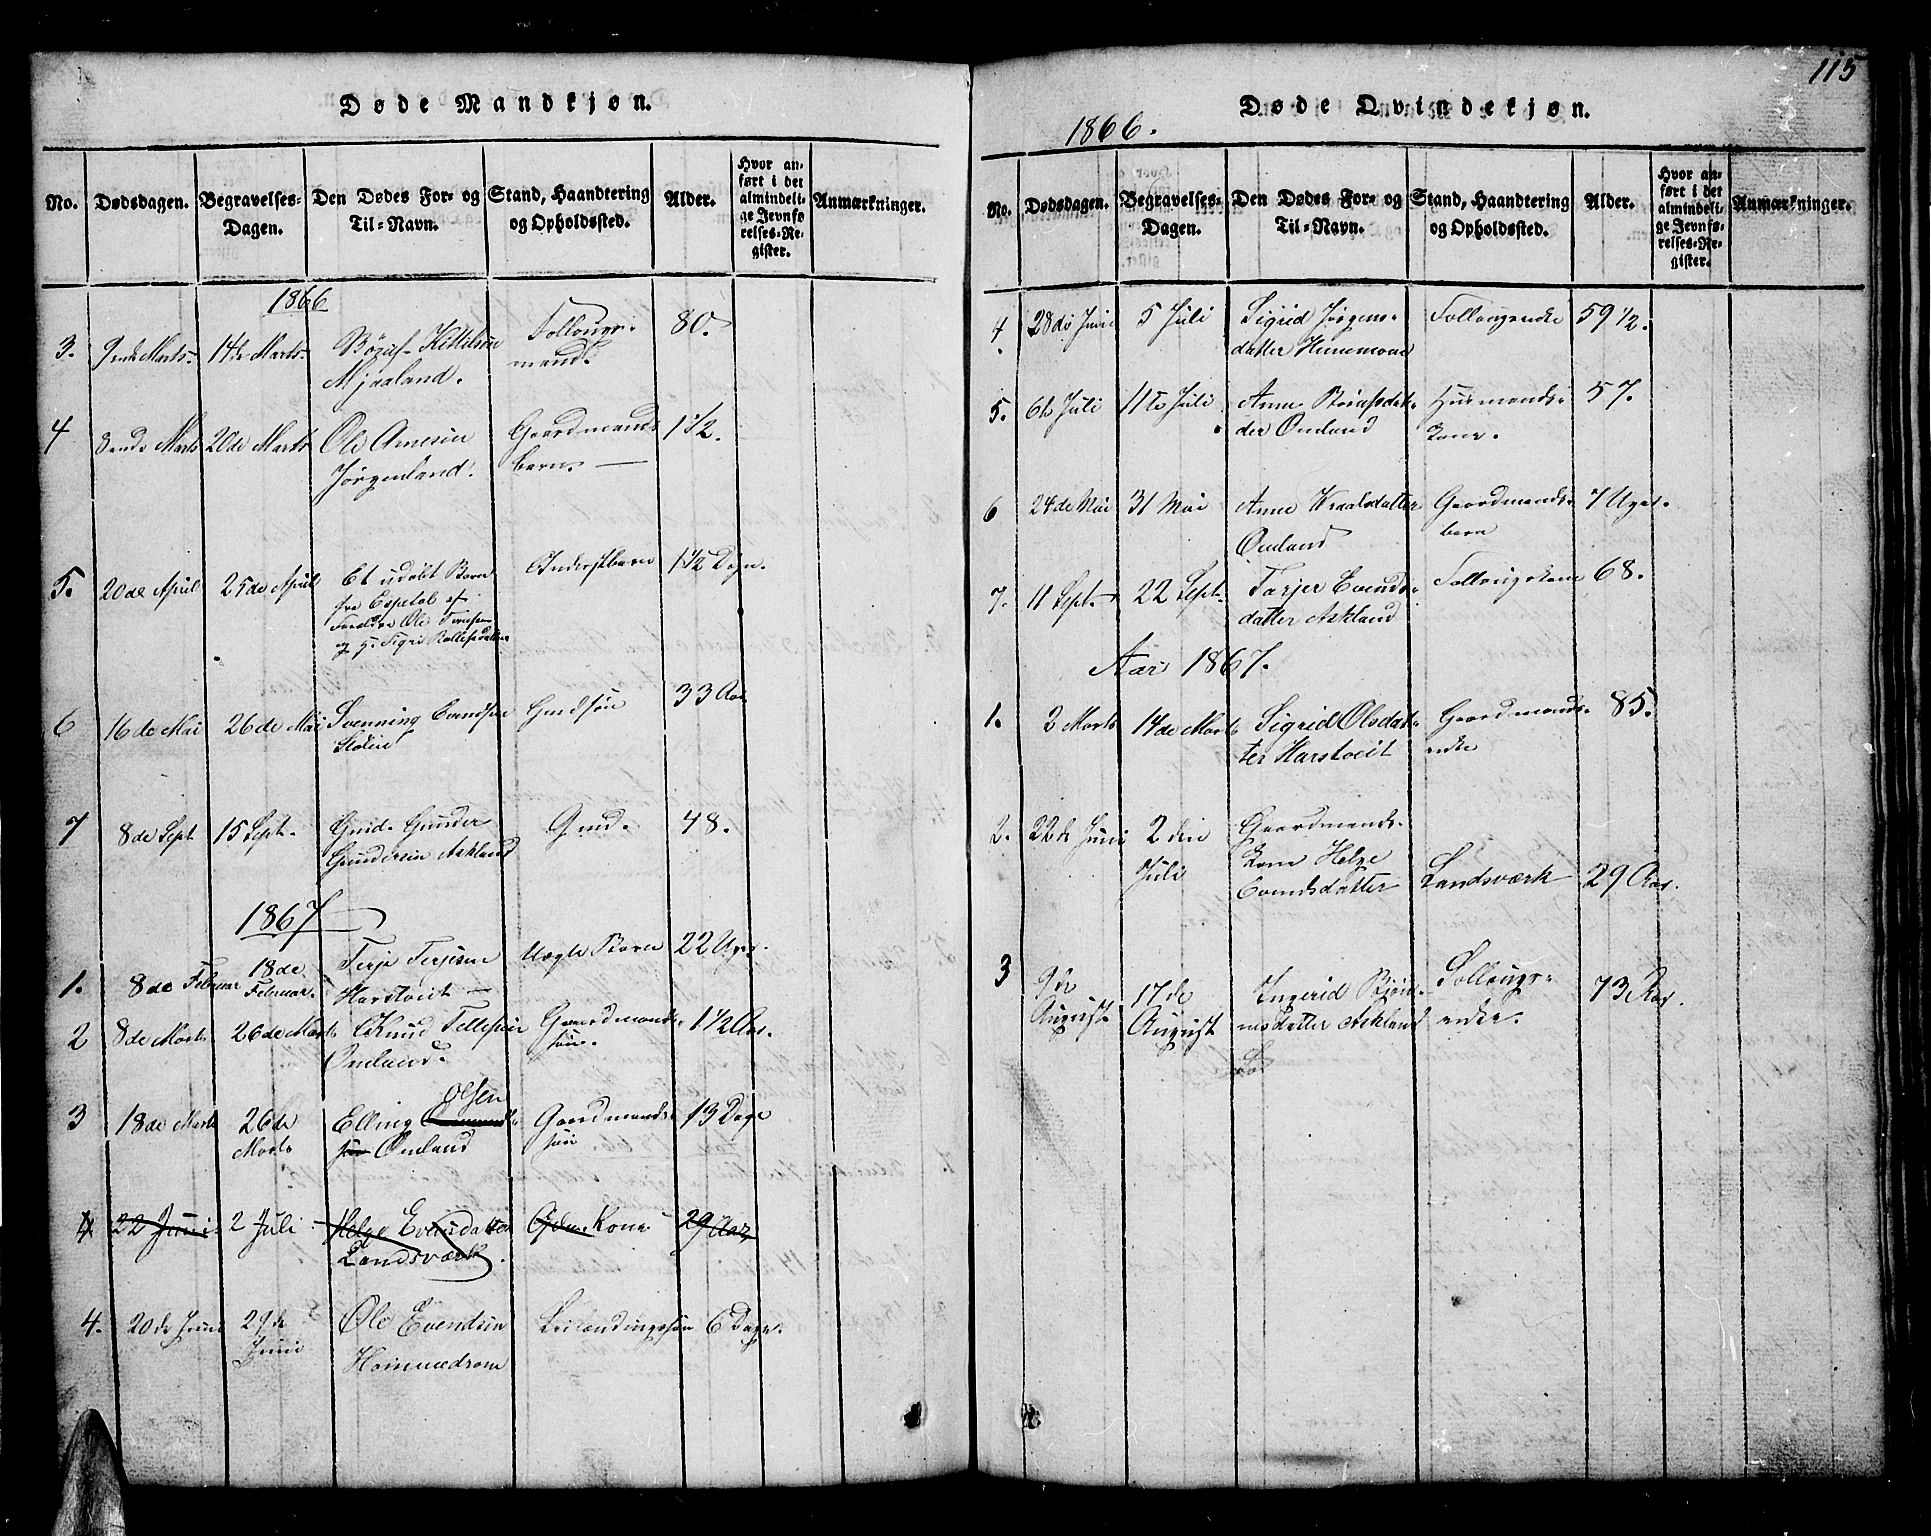 115
Døde Mandkjøn.
No.
Dødsdagen.
Begravelses-
Dagen.
Den Dødes For- og
Til-Navn.
Stand, Haandtering
og Opholdssted.
Alder.
Hvor an-
ført i det
almindeli-
ge Jevnfø
relses-Re-
gister.
Anmærkninger.
1866
3. 9ende Marts 14de Marts
Kittilsen
Mjaaland.
Follougs-
mand.
80.
4 8ende Marts 20de Marts Ole Arnesen
Jørgenland.
Gaardmands
barn.
1 1/2.
5. 20de April 25de April Et udøbt Barn
fra Espetøl af
Forældre Ole
Inderstbarn 1 1/2 Døgn.
6 16de Mai 26de Mai Svenning Evendsen
33 Aar
7 8de Sept 15 Sept. Gunder
Gundersen Askland
48.
1867
1. 8de Februar 18de
Februar.
Terje Terjesen
Harstveit
Uægte Barn 22 Uger.
2 8de Marts 26de Marts Knud Tellefsen
Omland.
Gaardmands-
søn.
1 1/2 Aar.
3 18de Marts 26de
Marts
Elling Olsen
Omland
Gaardmands-
søn
13 Dage
4 22 Juni 2 Juli Helge Evensdatter
Landsværk.
Kone 29 Aar
4. 20de Juni 29de
Juni
Ole Evendsen
Leilændingssøn 6 Dage.
Døde Qvindekjøn.
1866.
No.
Dødsdagen.
Begravelses-
Dagen.
Den Dødes For- og
Til-Navn.
Stand, Haandtering
og Opholdssted.
Alder.
Hvor an-
ført i det
almindeli-
ge Jevnfø-
relses-Re-
gister.
Anmærkninger.
4 28de Juni 5 Juli Sigrid Jørgens-
datter
Follougsenke 59 1/2.
5. 6te Juli 11te Juli Anne
Omland
Huusmands-
kone.
57.
6 24de Mai 31 Mai Anne
Omland
Gaardmands-
barn
7 Uger.
7. 11 Sept. 22 Sept. Tarjer Evends-
datter Askland
Follougskone 68.
Aar 1867.
1. 3 Marts 14de Marts Sigrid Olsdat-
ter Harstveit
Gaardmands-
enke
85.
2. 22de Juni 2den
Juli
Gaardmands-
kone Helge
Evendsdatter
Landsværk 29 Aar.
3 9de
August
17de
August
Ingerid Bjørn-
datter Askland
Follougs-
enke.
73 Aar.